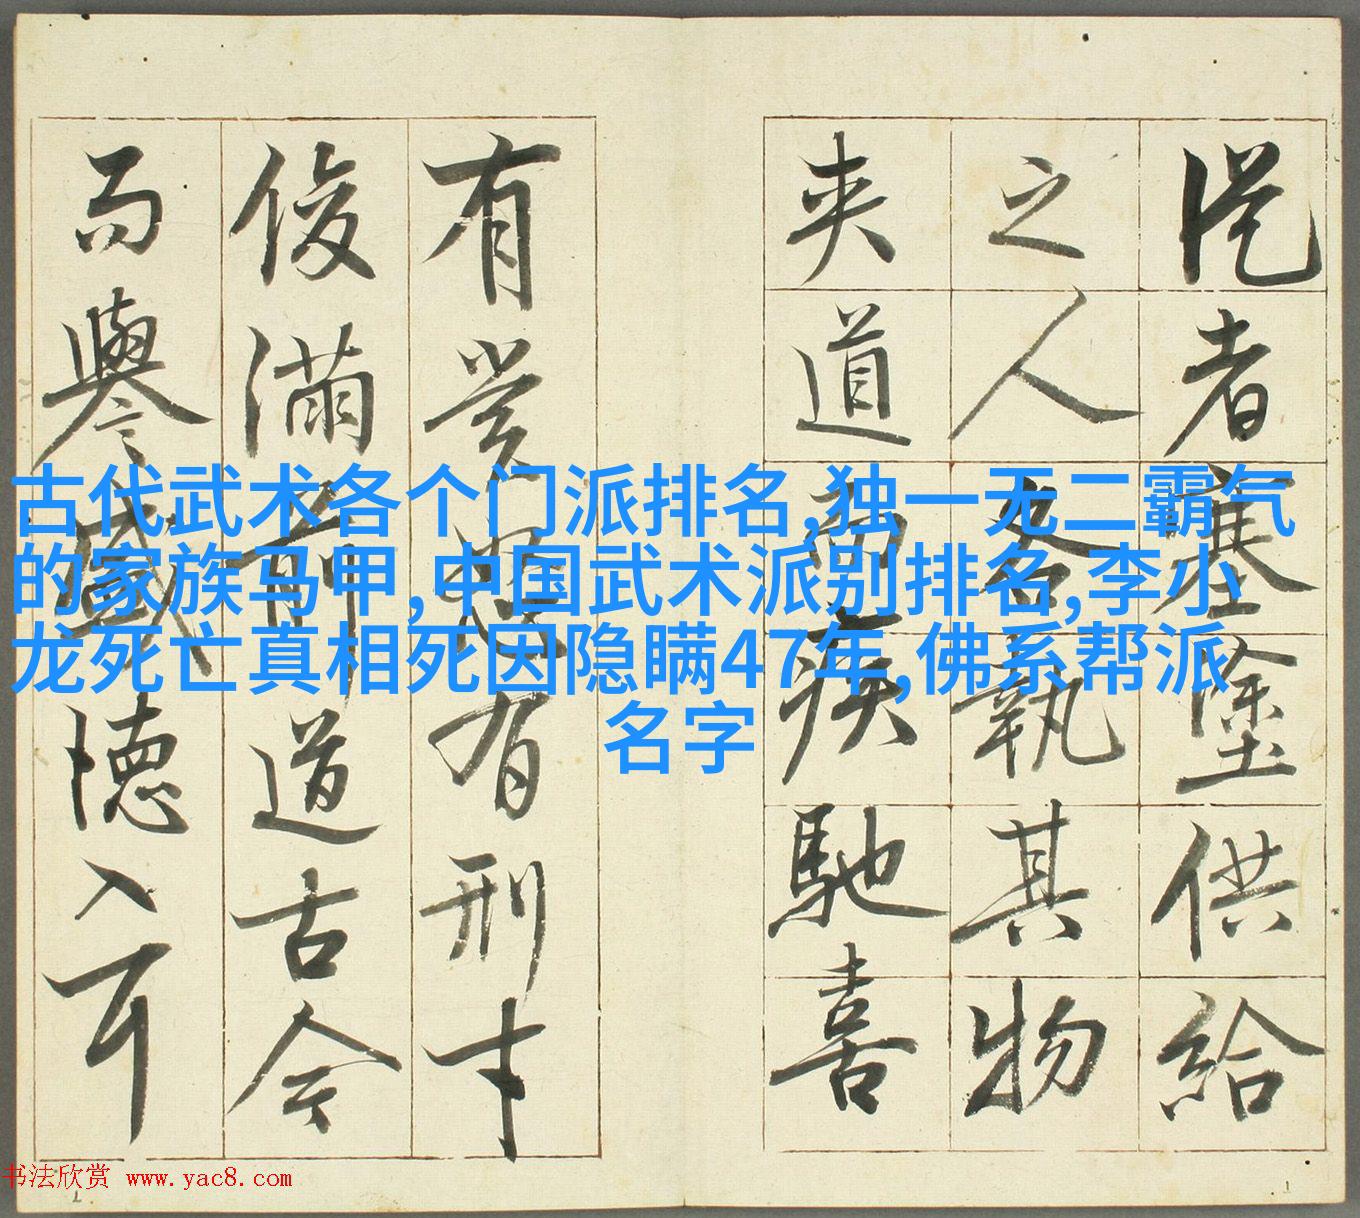 從者塞塗供給
之人各執其物
夾道而疾馳喜
有賞怒有刑才
俊滿前道古今
而譽盛德入耳
古代武术各个门派排名,独一无二霸气
的家族马甲,中国武术派别排名,李小
龙死亡真相死因隐瞒47年,佛系帮派
名字
书法欣赏 www.yac8.com